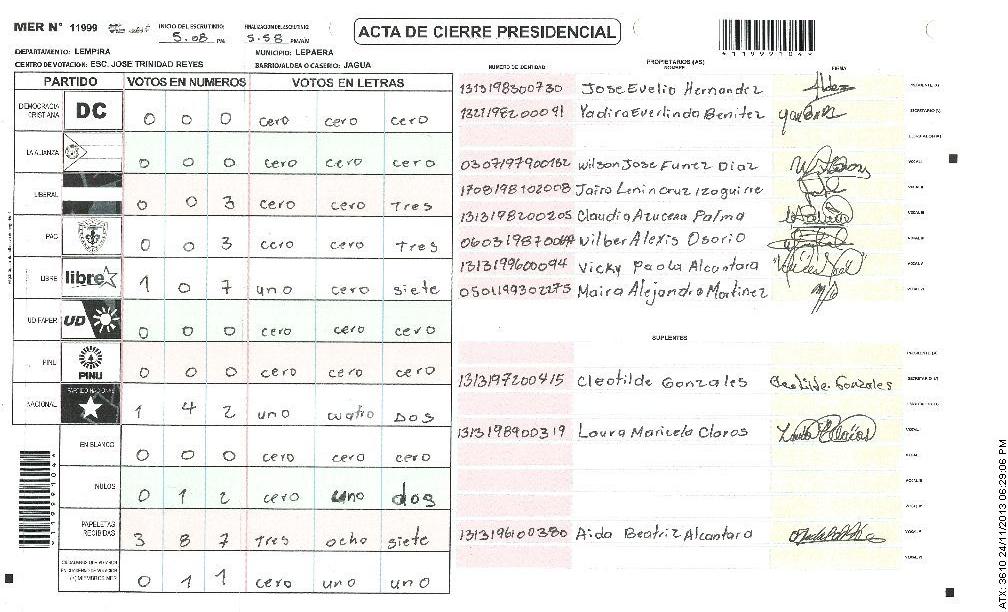 MER N° 11999 INICIO DEL ESCRUTINIO: 5.08 PM FINALIZACION DEL ESCRUTINIO: 5.58 PM/AM
ACTA DE CIERRE PRESIDENCIAL
4119991044
DEPARTAMENTO: LEMPIRA MUNICIPIO: LEPAERA
CENTRO DE VOTACION: ESC. JOSE TRINIDAD REYES BARRIO/ALDEA O CASERIO: JAGUA
PARTIDO VOTOS EN NUMEROS VOTOS EN LETRAS
DEMOCRACIA CRISTIANA DC 0 0 0 cero cero cero
LA ALIANZA 0 0 0 cero cero cero
LIBERAL 0 0 3 cero cero Tres
PAC 0 0 3 cero cero Tres
LIBRE libre 1 0 7 uno cero siete
UD FAPER UD 0 0 0 cero cero cero
PINU PINU 0 0 0 cero cero cero
NACIONAL PARTIDO NACIONAL 1 4 2 uno cuatro Dos
EN BLANCO 0 0 0 cero cero cero
NULOS 0 1 2 cero uno dos
PAPELETAS RECIBIDAS 3 8 7 Tres ocho siete
0 1 1 cero uno uno
NUMERO DE IDENTIDAD PROPIETARIOS (AS) NOMBRE FIRMA
1313198300730 Jose Evelio Hernandez PRESIDENTE (A)
1321198200091 Yadira Everlinda Benitez SECRETARIO (A)
ESCRUTADOR (A)
0307197900162 Wilson Jose Funez Diaz VOCAL I
1708198102008 Jairo Lenin Cruz Izaguirre VOCAL II
1313198200205 Claudia Azucena Palma VOCAL III
Vilber Alexis Osorio
1313199600094 Vicky Paola Alcantara VOCAL V
0501199302275 Maira Alejandra Martinez
SUPLENTES
PRESIDENTE (A)
1313197200415 Cleotilde Gonzales Cleotilde Gonzales SECRETARIO (A)
1313198900319 Laura Maricela Claros VOCAL I
1313196100380 Aida Beatriz Alcantara
ATX: 3610 24/11/2013 06:29:06 PM